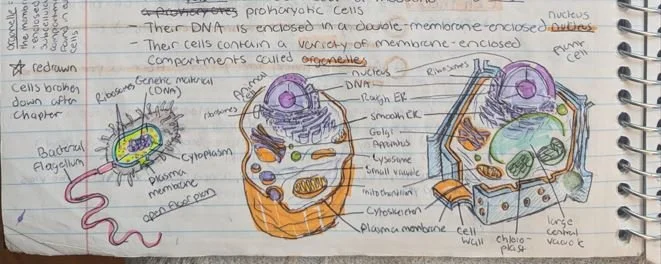 a prokaryotes prokaryotic cells
- Their DNA is enclosed in a double-membrane-enclosed nucleus
nucleus
- Their cells contain a variety of membrane-enclosed
compartments called organelles
plant
cell
organelle =
the membrane
enclosed
found in
☆ redrawn
Cells broken
down after
chapter
Ribosomes
Genetic material
(DNA)
Bacterial
Flagellum
Cytoplasm
plasma
membrane
Animal
ribosomes
nucleus
DNA
Rough ER
smooth ER
Golgi
Apparatus
Lysosome
Small vacuole
mitochondrion
Cytoskeleton
Plasma membrane
Ribosomes
cell
wall
chloro-
plast
large
central
vacuole